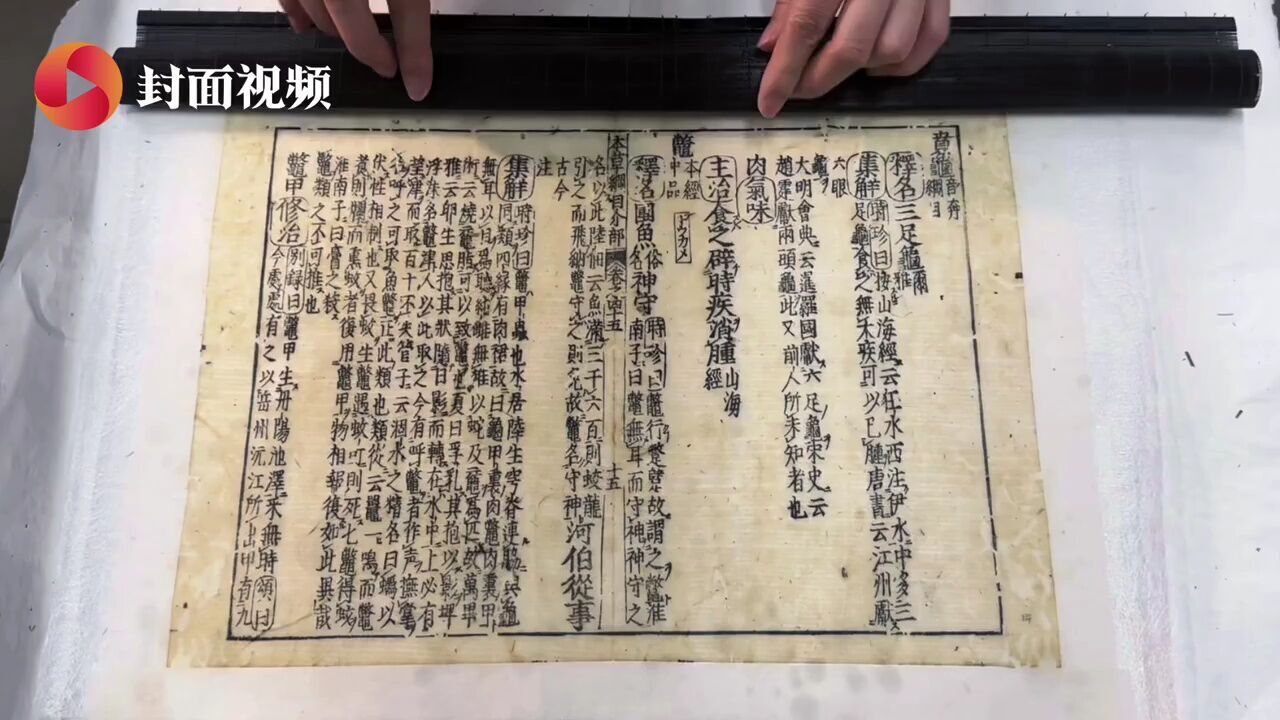 封面视频
賁龜音奔
綱目
釋名三足龜爾雅
集解時珍曰按山海經云狂水西注伊水中多三
足龜食之無大疾可以已腫唐書云江州獻
六眼
龜大明會典云暹羅國獻六足龜宋史云
趙霆獻兩頭龜此又前人所未知者也
肉氣味
主治食之辟時疾消腫山海經
鼈本經中品
釋名團魚俗名神守時珍曰鼈行蹩躄故謂之鼈淮
南子曰鼈無耳而守神神守之
本草綱目介部 卷四十五 十五
名以此陸佃云魚滿三千六百則蛟龍
引之而飛納鼈守之則免故鼈名守神河伯從事
古今注
集解時珍曰鼈甲蟲也水居陸生穹脊連脇與龜
同類四緣有肉裙故曰龜甲裏肉鼈肉裏甲
無耳以目爲聽純雌無雄以蛇及黿爲匹故萬畢
所云燒黿脂可以致鼈也夏日孚乳其抱以影埤
雅云卵生思抱其狀隨日影而轉在水中上必有
浮沫名鼈津人以此取之今有呼鼈者作声撫掌
望津而取百十不失管子云涸水之精名曰蟡以
名呼之可取魚鼈正此類也類從云鼉一鳴而鼈
伏性相制也又畏蚊生鼈遇蚊叮則死死鼈得蚊
煮則爛而熏蚊者復用鼈甲物相報復如此異哉
淮南子曰膏之殺
鼈類之不可推也
鼈甲修治別録曰鼈甲生丹陽池澤采無時頌曰
今處處有之以岳州沅江所出甲有九